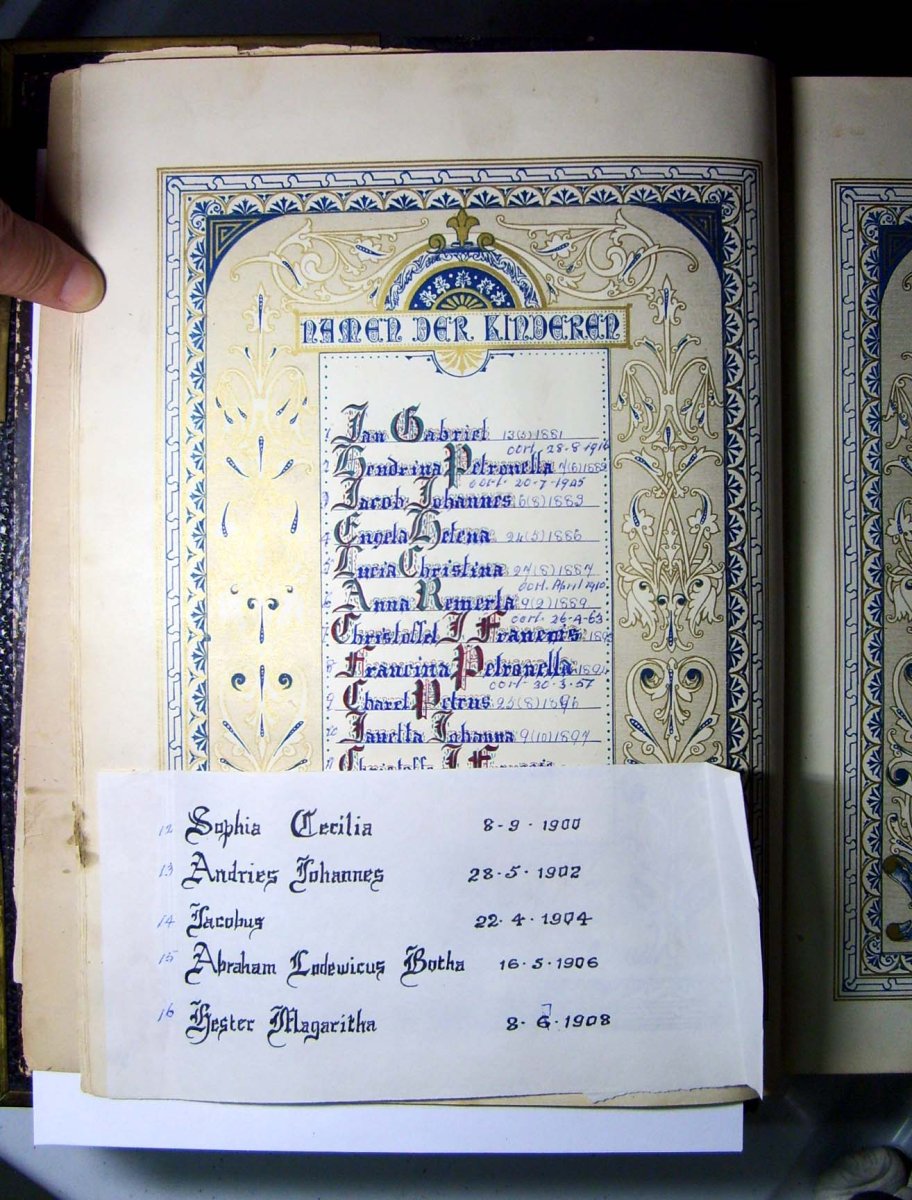 NAMEN DER KINDEREN
1 Jan Gabriel 13(3)1881
oorl. 28-8-1910
2 Hendrina Petronella
oorl. 20-7-1925
3 Jacob Johannes 6(8)1883
4 Engela Helena
5 Lucia Christina
oorl. April 1910
Anna Remerta 9(2)1889
oorl. 26-4-63
Christoffel J Francois
8 Francina Petronella
oorl. 30-3-57
9 Charel Petrus
10 Janetta Johanna 9(10)1897
12 Sophia Cecilia 8-9-1900
13 Andries Johannes 28-5-1902
14 Jacobus 22-4-1904
15 Abraham Lodewicus Botha 16-5-1906
16 Hester Magaritha 8-6-1908
7